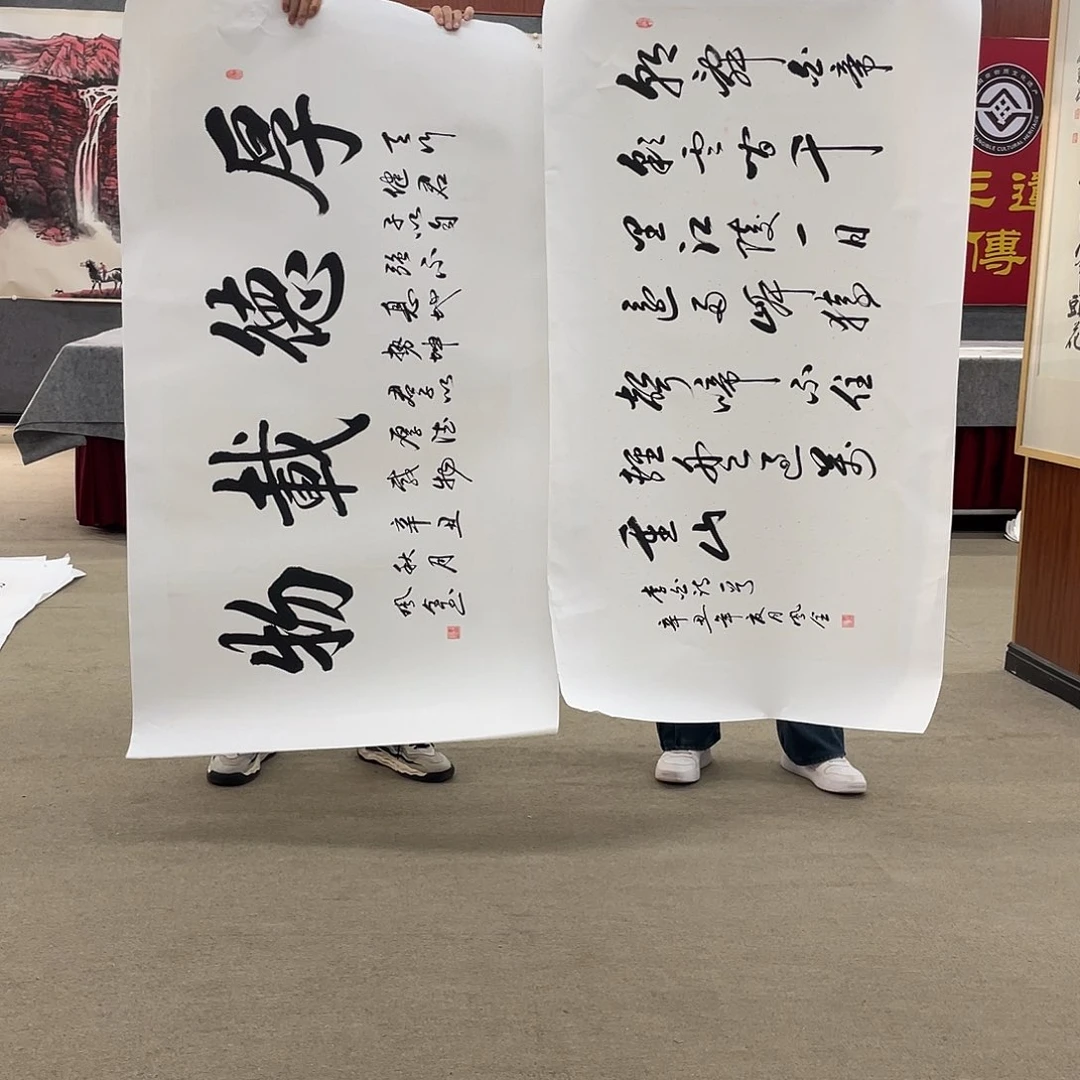 厚德載物
天行
健君
子以自
強不
息地
勢坤
君子以
厚德
載物
辛丑
秋月
朝辭白帝
彩雲間千
里江陵一日
還兩岸猿
聲啼不住
輕舟已過萬
重山
李白詩一首
辛丑年夏月風金
TANGIBLE CULTURAL HERITAGE
三遺
傳
頭花